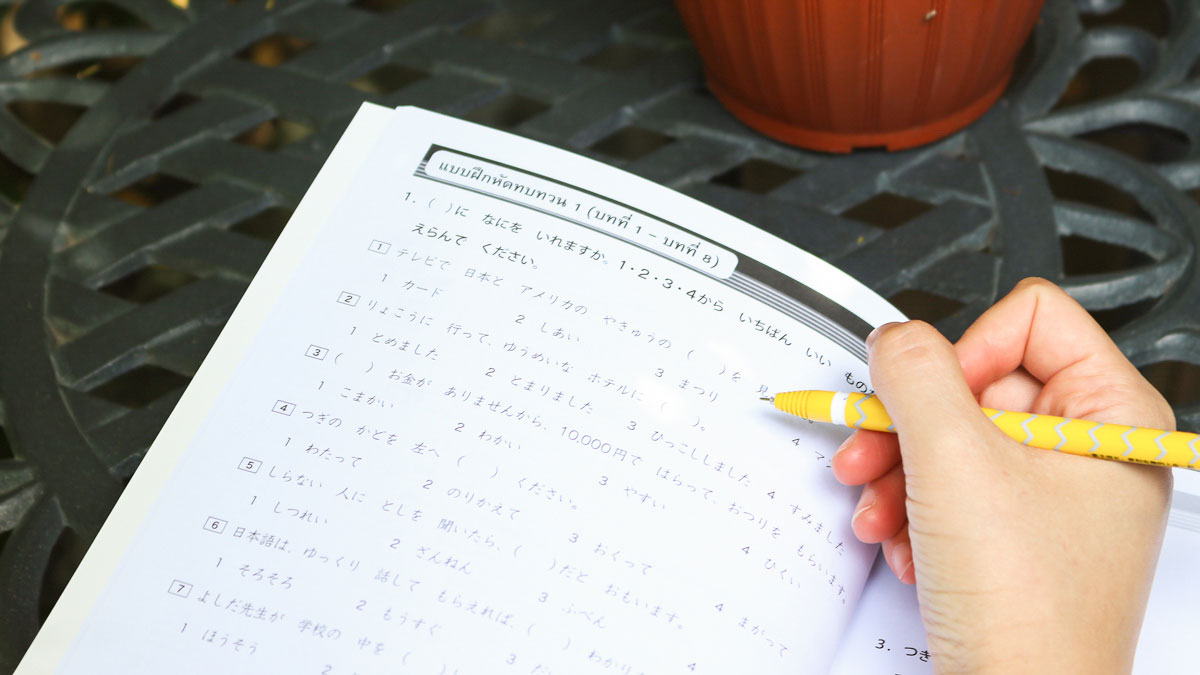 แบบฝึกหัดทบทวน 1 (บทที่ 1 - บทที่ 8)
1. ( )に なにを いれますか。1・2・3・4から いちばん いい
えらんで ください。
1 テレビで 日本と アメリカの やきゅうの ( )を 見
1 カード 2 しあい 3 まつり 4
2 りょこうに 行って、ゆうめいな ホテルに ( )。
1 とめました 2 とまりました 3 ひっこしました 4 すみました
3 ( ) お金が ありませんから、10,000円で はらって、おつりを もらいます。
1 こまかい 2 わかい 3 やすい 4 ひくい
4 つぎの かどを 左へ ( ) ください。
1 わたって 2 のりかえて 3 おくって 4 まがって
5 しらない 人に としを 聞いたら、( )だと おもいます。
1 しつれい 2 ざんねん 3 ふべん 4
6 日本語は、ゆっくり 話して もらえれば、( )
1 そろそろ 2 もうすぐ 3
7 よしだ先生が 学校の 中を ( )
1 ほうそう 2
3. つぎ